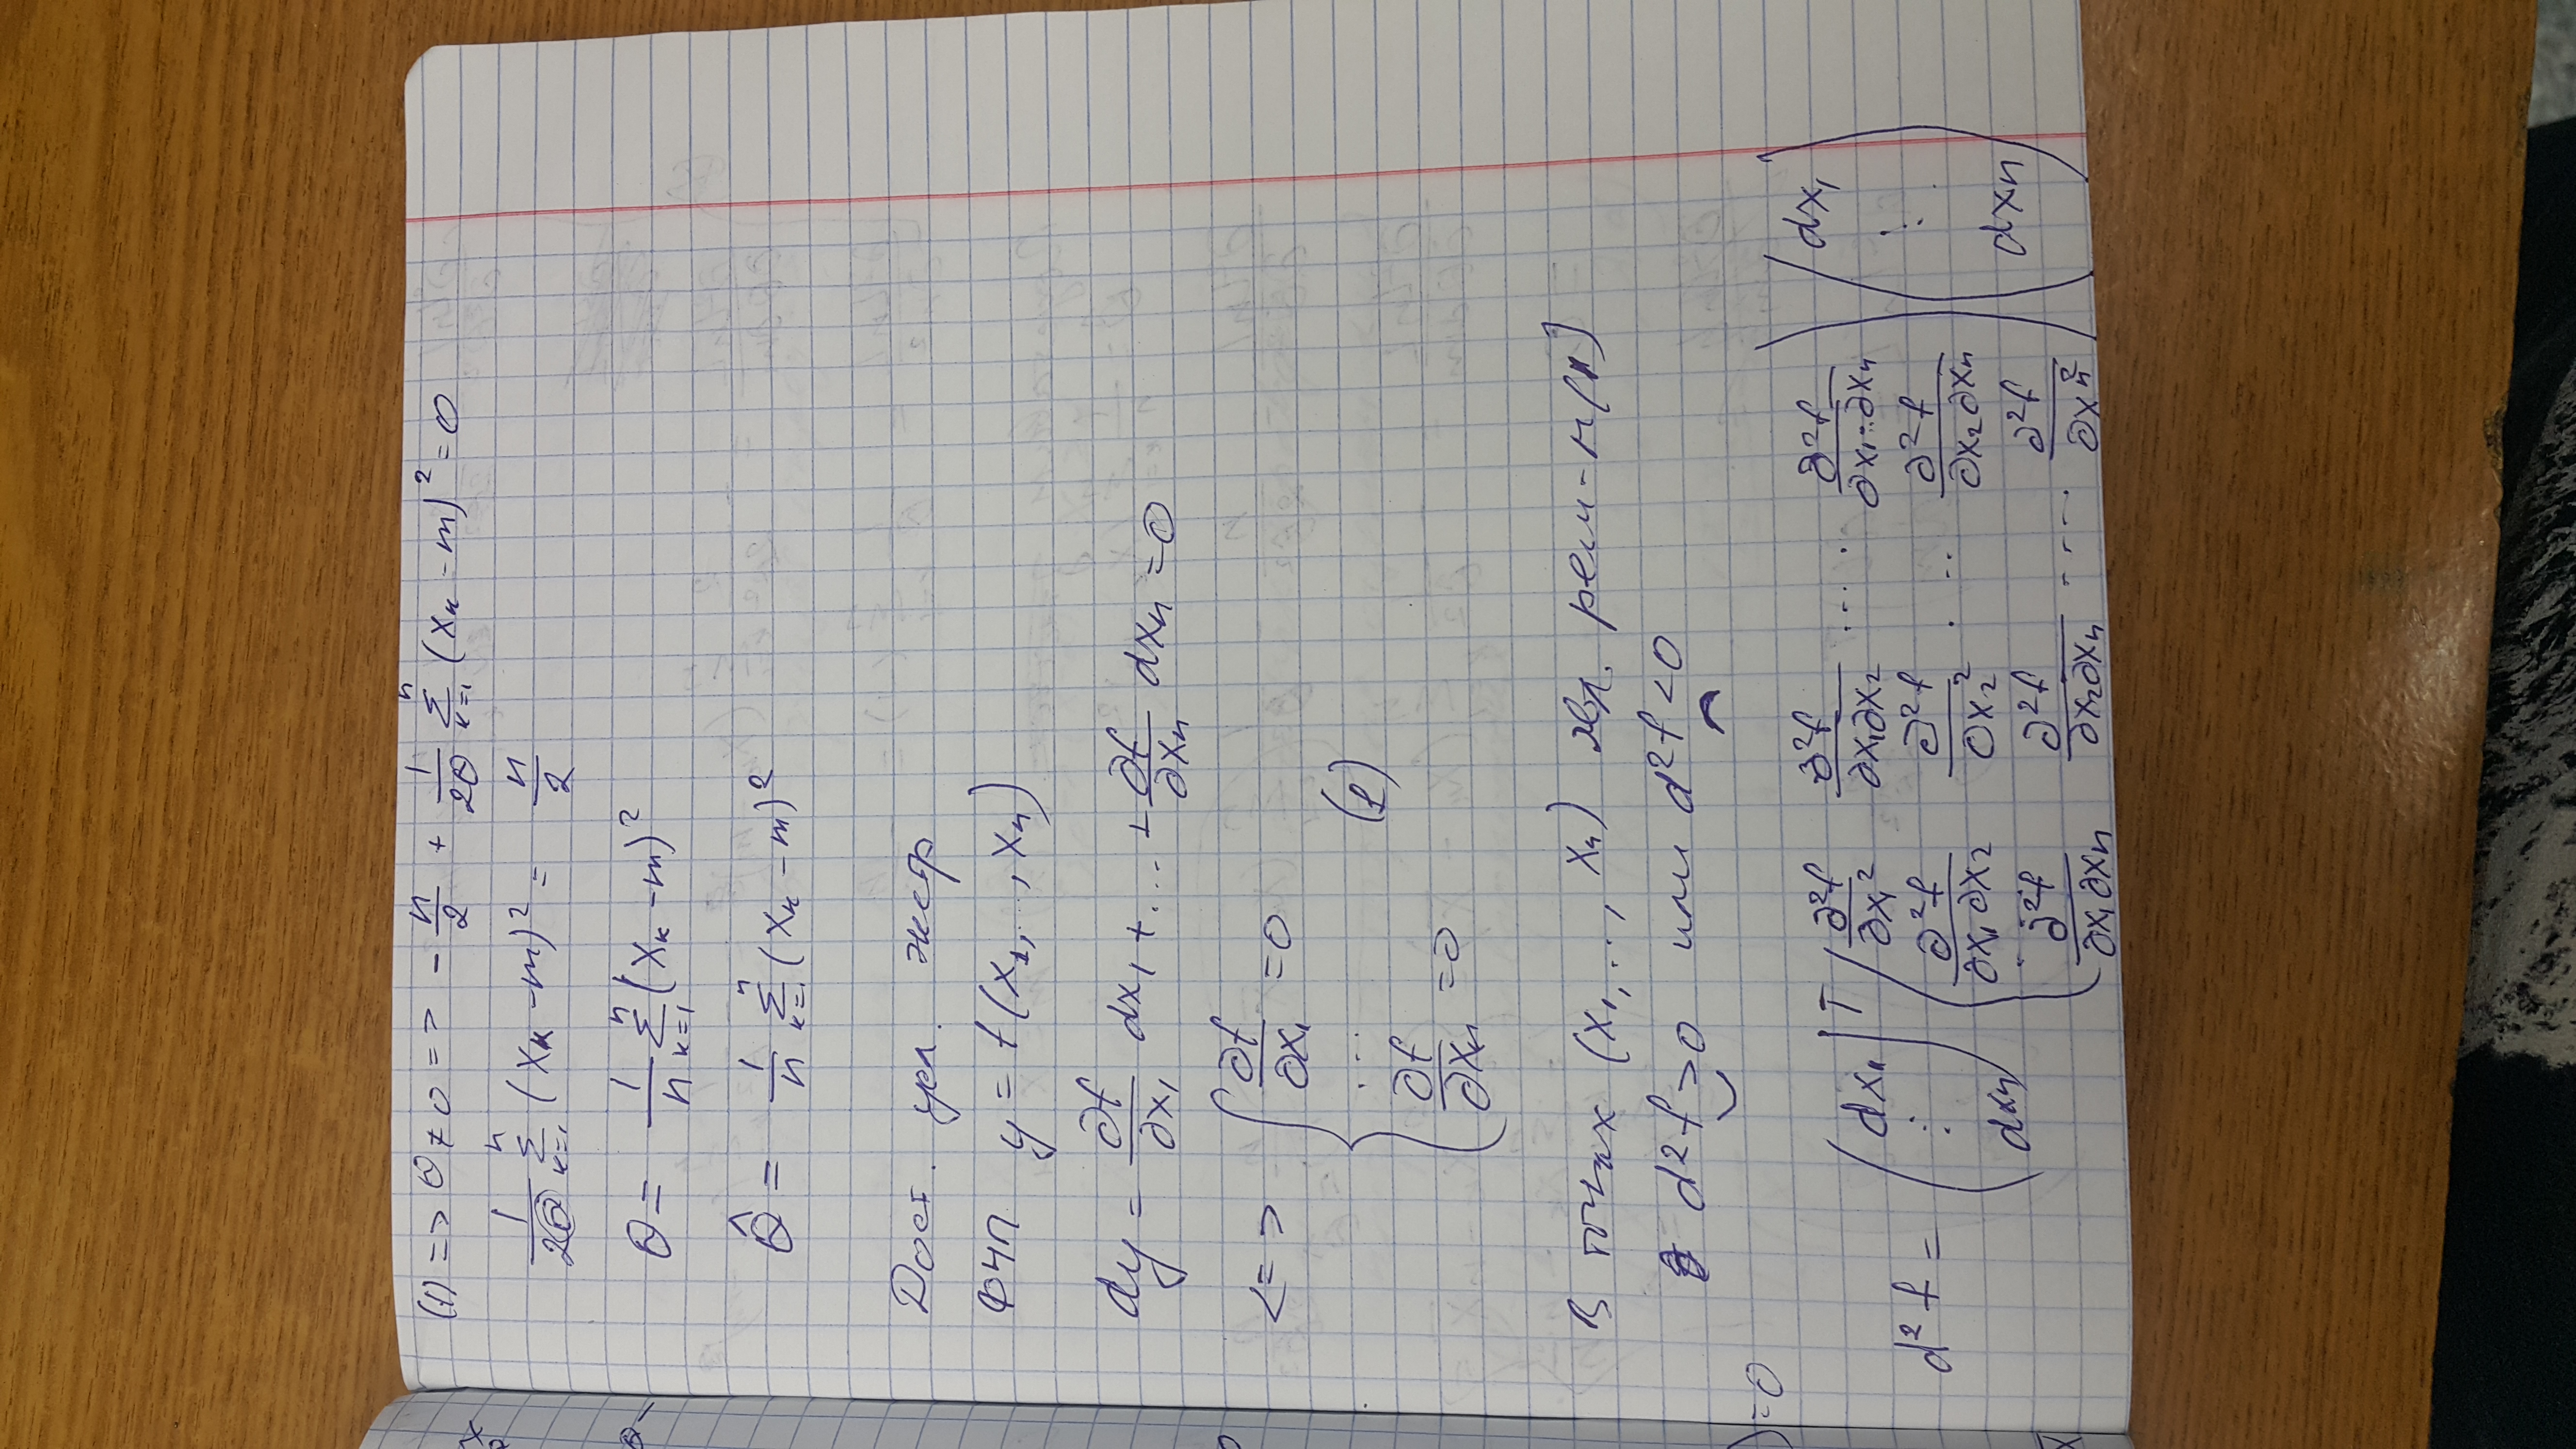 (1) => θ ≠ 0 => - n/2 + 1/(2θ) Σ_{k=1}^{n} (x_k - m)² = 0
1/(2θ) Σ_{k=1}^{n} (x_k - m)² = n/2
θ = 1/n Σ_{k=1}^{n} (x_k - m)²
θ̂ = 1/n Σ_{k=1}^{n} (x_k - m)²
Дост. усл. экстр
ФЧП y = f(x₁, ..., xₙ)
dy = ∂f/∂x₁ dx₁ + ... + ∂f/∂xₙ dxₙ = 0
<=> { ∂f/∂x₁ = 0
...
(1)
∂f/∂xₙ = 0
В точках (x₁, ..., xₙ) явл. реш-м (1)
d²f > 0 или d²f < 0
) = 0
d²f = (dx₁ ⋮ dxₙ)ᵀ ( ∂²f/∂x₁² ∂²f/∂x₁∂x₂ .... ∂²f/∂x₁..∂xₙ
∂²f/∂x₁∂x₂ ∂²f/∂x₂² ... ∂²f/∂x₂∂xₙ
.....
∂²f/∂x₁∂xₙ ∂²f/∂x₂∂xₙ .... ∂²f/∂xₙ² ) (dx₁ ⋮ dxₙ)